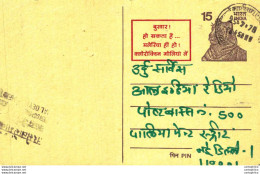 बुखार!
हो सकता है...
मलेरिया ही हो।
क्लोरोक्विन गोलियां लें
15
भारत
INDIA
उर्दू सर्विस
आल इंडिया रेडियो
पोस्ट बाक्स नं. 500
पार्लियामेन्ट स्ट्रीट
नई दिल्ली-1
पिन PIN
110001